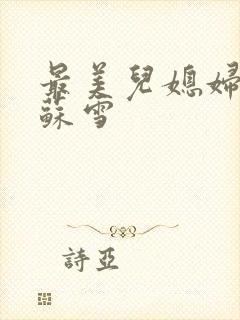 最美兒媳婦
蘇雪
詩亞